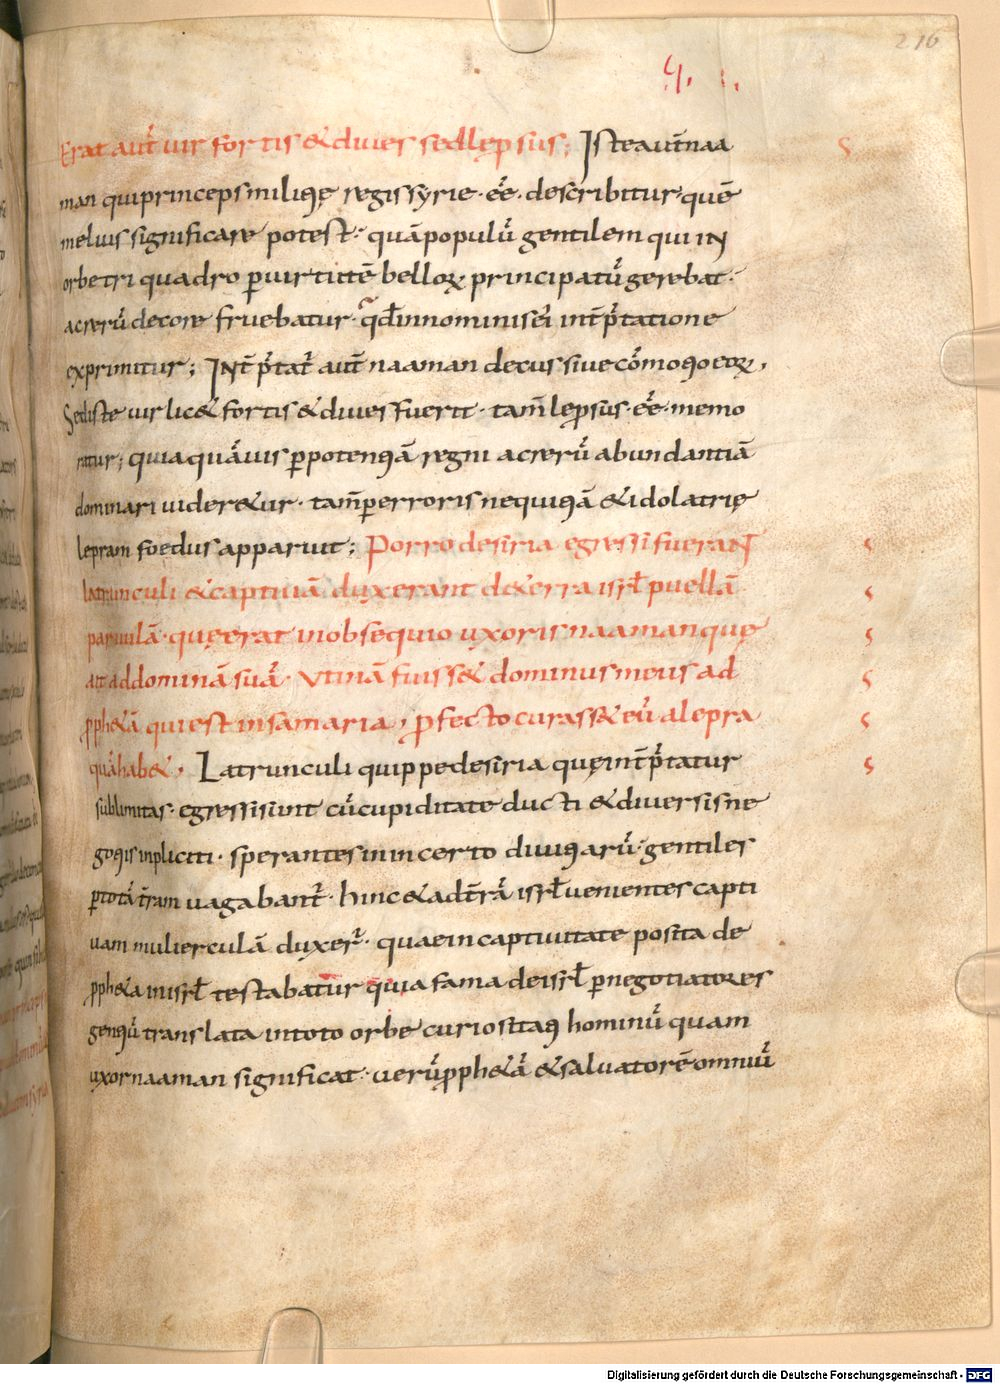 216
Erat aut̄ uir fortis & diues sed lep̄sus; Iste aut̄ naa
man qui princeps militię regis syrie · ēē · describitur · quē
melius significare potest · quā populū gentilem qui IN
orbe tri quadro p̱ uirtutē belloꝝ principatū gerebat ·
ac rerū decore fruebatur · qđ in nominis ei᾽ int̄p̄tatione
exprimitur; INt̄p̄tat᾽ aut̄ naaman decus siue cōmotio eoꝝ,
Sed iste uir lic& fortis & diues fuerit · tam̄ lep̱sus · ēē · memo
ratur; quia quāuis p̱ potentiā regni ac rerū abundantiā
dominari uider&ur · tam̄ p̱ erroris nequitiā & idolatrię
lepram foedus apparuit; Porro de siria egressi fueraN
latrunculi & captiuā duxerant de terra isrł puellā
paruulā · quę erat in obsequio uxoris naaman quę
ait ad dominā suā · Vtinā fuiss& dominus meus ad
p̱ph&ā qui est in samaria, p̱fecto curass& eū a lepra
quā hab&. Latrunculi quippe de siria quę int̄p̄tatur
sublimitas · egressi sunt cū cupiditate ducti & diuersis ne
gotiis inpliciti · sperantes in incerto diuitiarū · gentiles
p̱ totā t̄ram uagabant᾽ · hinc & ad t̄rā isrł uenientes capti
uam mulierculā duxer᾽ · quae in captiuitate posita de
p̱ph&a in isrł testabatur quia fama de isrł p̱ negotiatores
gentiū translata in toto orbe curiositatē hominū quam
uxor naaman significat · uerū p̱ph&ā & saluatorē omniū
Digitalisierung gefördert durch die Deutsche Forschungsgemeinschaft - DFG